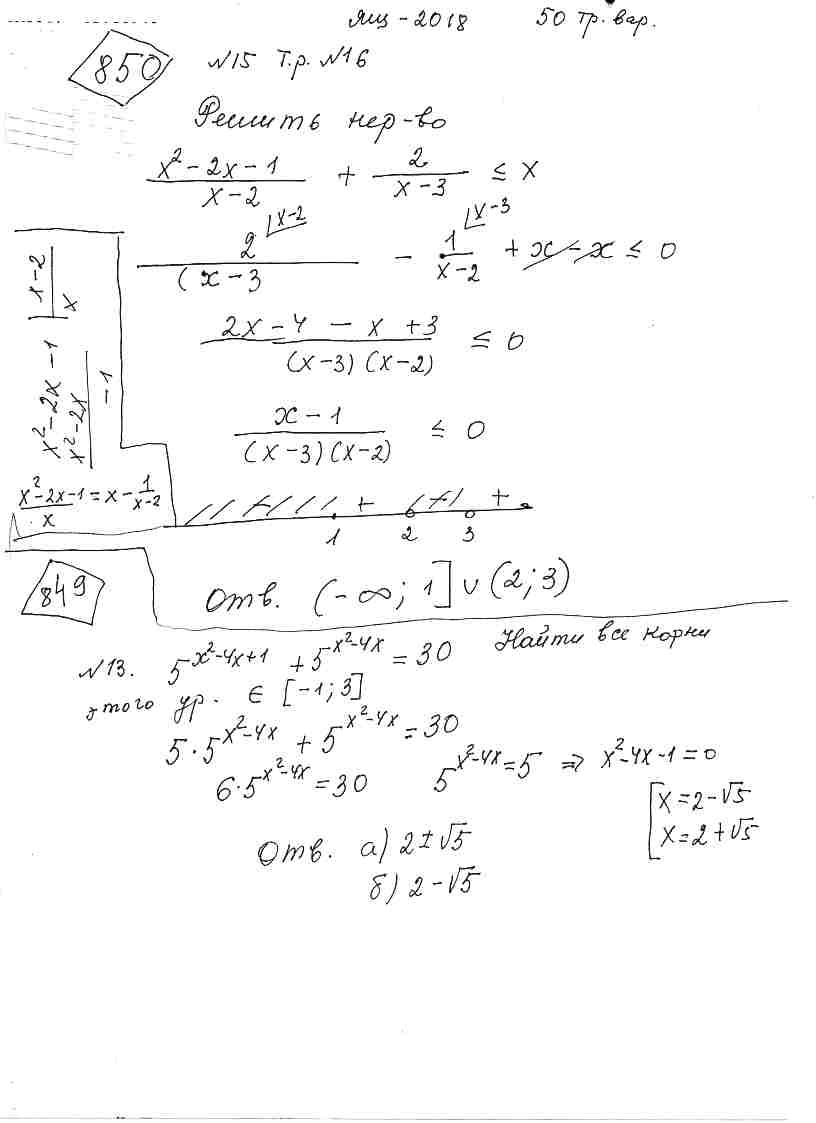 Ящ - 2018 50 тр. вар.
850 N15 Т.р. N16
Решить нер-во
(x² - 2x - 1)/(x - 2) + 2/(x - 3) ≤ x
2/(x - 3 - 1/x-2 + x - x ≤ 0
x-2 x-3
(2x - 4 - x + 3)/((x-3)(x-2)) ≤ 0
(x - 1)/((x-3)(x-2)) ≤ 0
x² - 2x - 1 | x - 2
x² - 2x x
- 1
(x² - 2x - 1)/x = x - 1/(x-2)
+ - +
1 2 3
Отв. (-∞; 1] ∪ (2; 3)
849
N13. 5^(x²-4x+1) + 5^(x²-4x) = 30 Найти все корни
этого ур. ∈ [-1; 3]
5·5^(x²-4x) + 5^(x²-4x) = 30
6·5^(x²-4x) = 30 5^(x²-4x) = 5 ⇒ x²-4x-1 = 0
[x = 2-√5
x = 2+√5
Отв. а) 2±√5
б) 2-√5